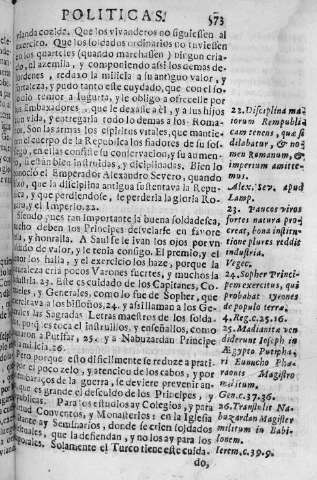 POLITICAS. 573
vianda cozida. Que los vivanderos no siguiessen al
exercito. Que los soldados ordinarios no tuviessen
en los quarteles (quando marchassen) ningun criado,
ni azemila, y componiendo assi los demas desordenes,
reduxo la milicia a su antiguo valor, y
fortaleza, y pudo tanto este cuydado, que con el solo
puso temor a Iugurta, y le obligò a ofrecelle por
sus Embaxadores, que le dexasse a èl, y a sus hijos
con vida, y entregaria todo lo demas a los Romanos.
Son las armas los espiritus vitales, que mantienen
el cuerpo de la Republica los fiadores de su sossiego,
en ellas consiste su conservacion, y su aumento,
si están bien instruidas, y disciplinadas. Bien lo
conociò el Emperador Alexandro Severo, quando
dixo, que la disciplina antigua sustentava la Republica,
y que perdiendose, se perderia la gloria Romana,
y el Imperio. 22
Siendo pues tan importante la buena soldadesca,
mucho deben los Principes desvelarse en favorecella,
y honralla. A Saul se le ivan los ojos por un
soldado de valor, y le tenia consigo. El premio, y el
honor los halla, y el exercicio los haze, porque la
naturaleza cria pocos Varones fuertes, y muchos la
industria. 23. Este es cuidado de los Capitanes, Coroneles,
y Generales, como lo fue de Sopher, que
exercitava a los bisoños, 24. y assi llaman a los Generales
las Sagradas Letras maestros de los soldados,
porque les toca el instruillos, y enseñallos, como
llamaron a Putifar, 25. y a Nabuzardan Principe
de la milicia. 26.
Pero porque esto dificilmente se reduze a pratica
por el poco zelo, y atencion de los cabos, y por
los embaraços de la guerra, se deviere prevenir antes,
en que es grande el descuido de los Principes, y
Republicas. Para los estudios ay Colegios, y para
la virtud Conventos, y Monasterios en la Iglesia
Militante ay Seminarios, donde se crien soldados
espirituales, que la defiendan, y no los ay para los
temporales. Solamente el Turco tiene este cuidado,
22. Disciplina maiorum
Rempublicam
tenens, quæ si
dilabatur, & nomen
Romanum, &
imperium amittemus.
Alex. Sev. apud
Lamp.
23. Paucos viros
fortes natura procreat,
bona institutione
plures reddit
industria.
Veget.
24. Sopher Principem
exercitus, qui
probabat tyrones
de populo terræ,
4. Reg. c. 25. 16.
25. Madianitæ vendiderunt
Ioseph in
Ægypto Putiphari
Eunucho Pharaonis
Magistro
militum.
Gen. c. 37. 36.
26. Transtulit Nabuzardan
Magister
militum in Babilonem.
Ierem. c. 39. 9.